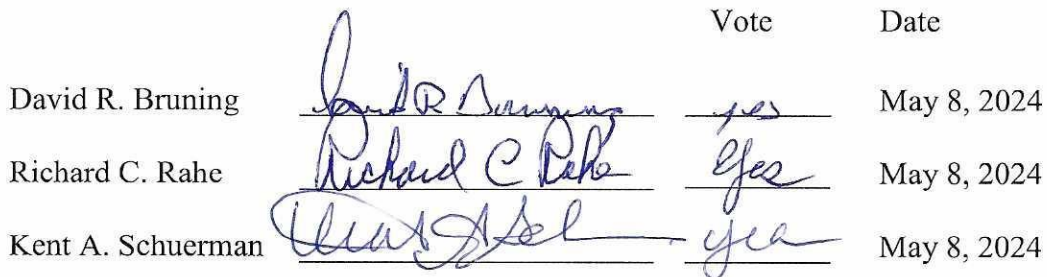 Vote Date
David R. Bruning David R Bruning yes May 8, 2024
Richard C. Rahe Richard C Rahe Yes May 8, 2024
Kent A. Schuerman Kent A yea May 8, 2024